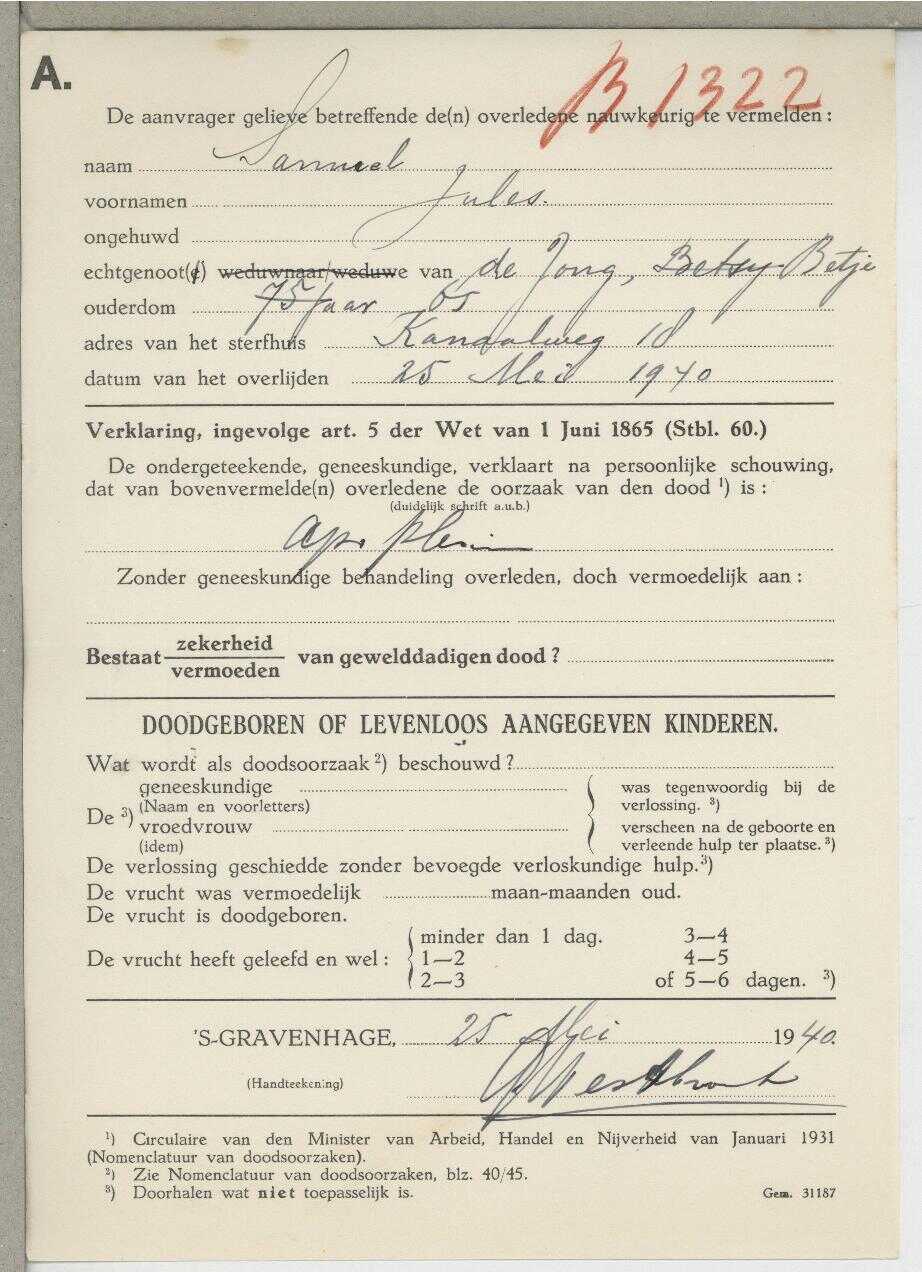 A.
B 1322
De aanvrager gelieve betreffende de(n) overledene nauwkeurig te vermelden :
naam Samuel
voornamen Jules.
ongehuwd
echtgenoot(e) weduwnaar/weduwe van de Jong, Betsy Betje
ouderdom 75 jaar 65
adres van het sterfhuis Kanaalweg 18
datum van het overlijden 25 Mei 1940
Verklaring, ingevolge art. 5 der Wet van 1 Juni 1865 (Stbl. 60.)
De ondergeteekende, geneeskundige, verklaart na persoonlijke schouwing,
dat van bovenvermelde(n) overledene de oorzaak van den dood ¹) is :
(duidelijk schrift a.u.b.)
Zonder geneeskundige behandeling overleden, doch vermoedelijk aan :
Bestaat zekerheid/vermoeden van gewelddadigen dood ?
DOODGEBOREN OF LEVENLOOS AANGEGEVEN KINDEREN.
Wat wordt als doodsoorzaak ²) beschouwd ?
De ³) geneeskundige
(Naam en voorletters)
vroedvrouw
(idem)
was tegenwoordig bij de
verlossing. ³)
verscheen na de geboorte en
verleende hulp ter plaatse. ³)
De verlossing geschiedde zonder bevoegde verloskundige hulp.³)
De vrucht was vermoedelijk maan-maanden oud.
De vrucht is doodgeboren.
De vrucht heeft geleefd en wel :
minder dan 1 dag. 3—4
1—2 4—5
2—3 of 5—6 dagen. ³)
'S-GRAVENHAGE, 25 Mei 1940.
(Handteekening)
¹) Circulaire van den Minister van Arbeid, Handel en Nijverheid van Januari 1931
(Nomenclatuur van doodsoorzaken).
²) Zie Nomenclatuur van doodsoorzaken, blz. 40/45.
³) Doorhalen wat niet toepasselijk is.
Gem. 31187